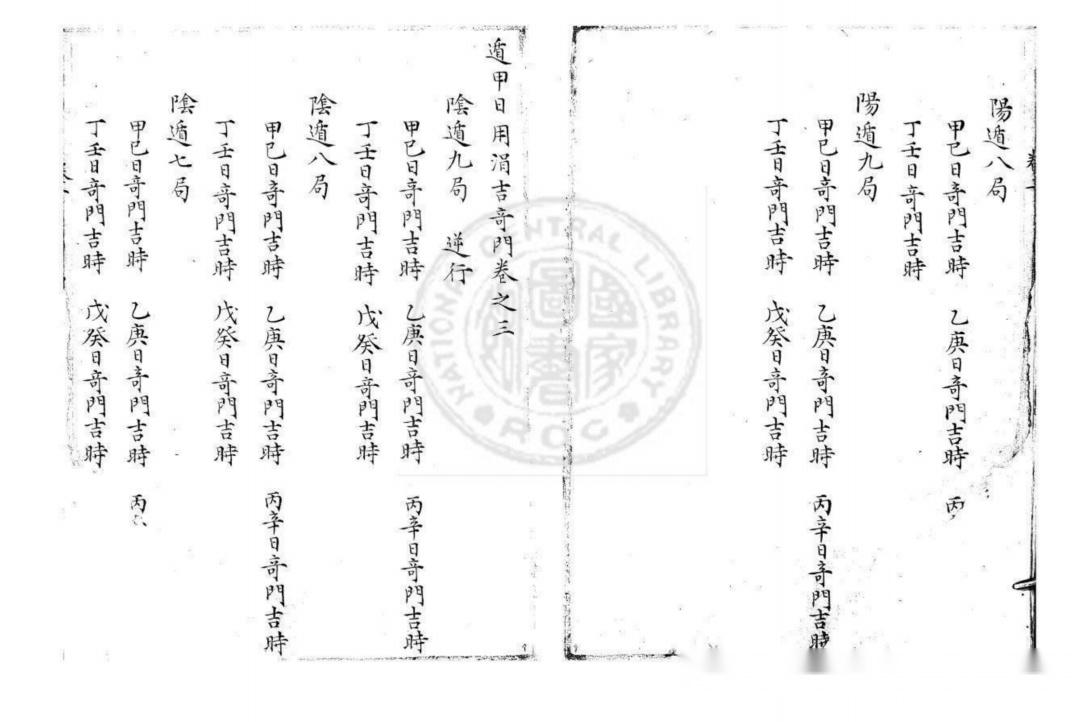 陽遁八局
甲己日竒門吉時 乙庚日竒門吉時 丙
丁壬日竒門吉時
陽遁九局
甲己日竒門吉時 乙庚日竒門吉時 丙辛日竒門吉時
丁壬日竒門吉時 戊癸日竒門吉時
遁甲日用涓吉竒門卷之三
陰遁九局 逆行
甲己日竒門吉時 乙庚日竒門吉時 丙辛日竒門吉時
丁壬日竒門吉時 戊癸日竒門吉時
陰遁八局
甲己日竒門吉時 乙庚日竒門吉時 丙辛日竒門吉時
丁壬日竒門吉時 戊癸日竒門吉時
陰遁七局
甲己日竒門吉時 乙庚日竒門吉時 丙
丁壬日竒門吉時 戊癸日竒門吉時
NATIONAL CENTRAL LIBRARY
R.O.C
國家圖書館